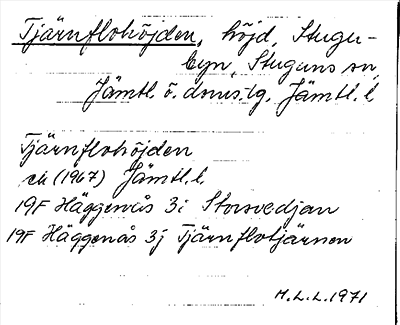 Tjärnflohöjden, höjd, Stugu-
byn, Stuguns sn,
Jämtl. ö. dms.-lg, Jämtl. l.
Tjärnflohöjden
ek (1967) Jämtl. l.
19F Häggenås 3i Storsvedjan
19F Häggenås 3j Tjärnflotjärnen
M.L.L. 1971